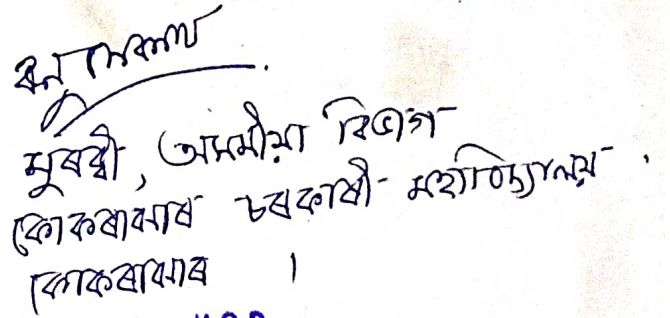 মুৰব্বী, অসমীয়া বিভাগ
কোকৰাঝাৰ চৰকাৰী মহাবিদ্যালয়.
কোকৰাঝাৰ ।